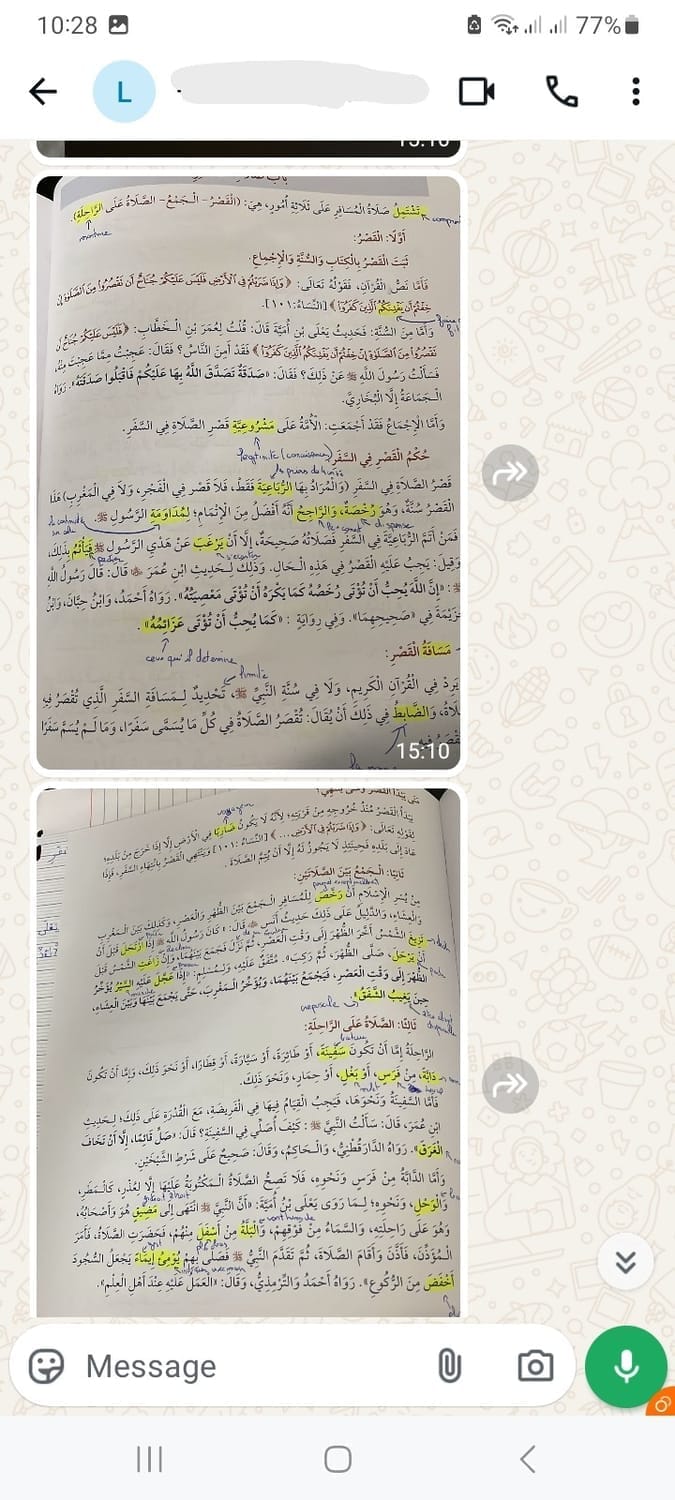 10:28
77%
L
15:10
تَشْتَمِلُ صَلَاةُ الْمُسَافِرِ عَلَى ثَلَاثَةِ أُمُورٍ، هِيَ: (الْقَصْرُ - الْجَمْعُ - الصَّلَاةُ عَلَى الرَّاحِلَةِ).
monture
أَوَّلًا: الْقَصْرُ:
ثَبَتَ الْقَصْرُ بِالْكِتَابِ وَالسُّنَّةِ وَالْإِجْمَاعِ.
فَأَمَّا نَصُّ الْقُرْآنِ، فَقَوْلُهُ تَعَالَى: ﴿وَإِذَا ضَرَبْتُمْ فِي الْأَرْضِ فَلَيْسَ عَلَيْكُمْ جُنَاحٌ أَن تَقْصُرُوا مِنَ الصَّلَاةِ إِنْ
خِفْتُمْ أَن يَفْتِنَكُمُ الَّذِينَ كَفَرُوا﴾ [النِّسَاءُ: ١٠١].
وَأَمَّا مِنَ السُّنَّةِ: فَحَدِيثُ يَعْلَى بْنِ أُمَيَّةَ قَالَ: قُلْتُ لِعُمَرَ بْنِ الْخَطَّابِ: ﴿فَلَيْسَ عَلَيْكُمْ جُنَاحٌ أَن
تَقْصُرُوا مِنَ الصَّلَاةِ إِنْ خِفْتُمْ أَن يَفْتِنَكُمُ الَّذِينَ كَفَرُوا﴾ فَقَدْ أَمِنَ النَّاسُ؟ فَقَالَ: عَجِبْتُ مِمَّا عَجِبْتَ مِنْهُ،
فَسَأَلْتُ رَسُولَ اللَّهِ ﷺ عَنْ ذَلِكَ؟ فَقَالَ: «صَدَقَةٌ تَصَدَّقَ اللَّهُ بِهَا عَلَيْكُمْ فَاقْبَلُوا صَدَقَتَهُ». رَوَاهُ
الْجَمَاعَةُ إِلَّا الْبُخَارِيَّ.
وَأَمَّا الْإِجْمَاعُ فَقَدْ أَجْمَعَتِ: الْأُمَّةُ عَلَى مَشْرُوعِيَّةِ قَصْرِ الصَّلَاةِ فِي السَّفَرِ.
حُكْمُ الْقَصْرِ فِي السَّفَرِ
قَصْرُ الصَّلَاةِ فِي السَّفَرِ (وَالْمُرَادُ بِهَا الرُّبَاعِيَّةُ فَقَطْ، فَلَا قَصْرَ فِي الْفَجْرِ، وَلَا فِي الْمَغْرِبِ)
الْقَصْرُ سُنَّةٌ، وَهُوَ رُخْصَةٌ، وَالرَّاجِحُ أَنَّهُ أَفْضَلُ مِنَ الْإِتْمَامِ؛ لِمُدَاوَمَةِ الرَّسُولِ ﷺ.
فَمَنْ أَتَمَّ الرُّبَاعِيَّةَ فِي السَّفَرِ فَصَلَاتُهُ صَحِيحَةٌ، إِلَّا أَنْ يَرْغَبَ عَنْ هَدْيِ الرَّسُولِ ﷺ فَيَأْثَمُ بِذَلِكَ،
وَقِيلَ: يَجِبُ عَلَيْهِ الْقَصْرُ فِي هَذِهِ الْحَالِ. وَذَلِكَ لِحَدِيثِ ابْنِ عُمَرَ قَالَ: قَالَ رَسُولُ اللَّهِ
ﷺ: «إِنَّ اللَّهَ يُحِبُّ أَنْ تُؤْتَى رُخَصُهُ كَمَا يَكْرَهُ أَنْ تُؤْتَى مَعْصِيَتُهُ». رَوَاهُ أَحْمَدُ، وَابْنُ حِبَّانَ، وَابْنُ
خُزَيْمَةَ فِي «صَحِيحِهِمَا». وَفِي رِوَايَةٍ: «كَمَا يُحِبُّ أَنْ تُؤْتَى عَزَائِمُهُ».
مَسَافَةُ الْقَصْرِ:
ceux qui il determine
limite
يَرِدْ فِي الْقُرْآنِ الْكَرِيمِ، وَلَا فِي سُنَّةِ النَّبِيِّ ﷺ، تَحْدِيدٌ لِمَسَافَةِ السَّفَرِ الَّذِي تُقْصَرُ فِيهِ
وَالضَّابِطُ فِي ذَلِكَ أَنْ يُقَالَ: تُقْصَرُ الصَّلَاةُ فِي كُلِّ مَا يُسَمَّى سَفَرًا، وَمَا لَمْ يُسَمَّ سَفَرًا
15:10
يَبْدَأُ الْقَصْرُ مُنْذُ خُرُوجِهِ مِنْ قَرْيَتِهِ؛ لِأَنَّهُ لَا يَكُونُ ضَارِبًا فِي الْأَرْضِ إِلَّا إِذَا خَرَجَ مِنْ بَلَدِهِ؛
لِقَوْلِهِ تَعَالَى: ﴿وَإِذَا ضَرَبْتُمْ فِي الْأَرْضِ ...﴾ [النِّسَاءُ: ١٠١] وَيَنْتَهِي الْقَصْرُ بِانْتِهَاءِ السَّفَرِ، فَإِذَا
عَادَ إِلَى بَلَدِهِ فَحِينَئِذٍ لَا يَجُوزُ لَهُ إِلَّا أَنْ يُتِمَّ الصَّلَاةَ.
ثَانِيًا: الْجَمْعُ بَيْنَ الصَّلَاتَيْنِ:
مِنْ يُسْرِ الْإِسْلَامِ أَنْ رَخَّصَ لِلْمُسَافِرِ الْجَمْعَ بَيْنَ الظُّهْرِ وَالْعَصْرِ، وَكَذَلِكَ بَيْنَ الْمَغْرِبِ
وَالْعِشَاءِ، وَالدَّلِيلُ عَلَى ذَلِكَ حَدِيثُ أَنَسٍ قَالَ: «كَانَ رَسُولُ اللَّهِ ﷺ إِذَا ارْتَحَلَ قَبْلَ أَنْ
تَزِيغَ الشَّمْسُ أَخَّرَ الظُّهْرَ إِلَى وَقْتِ الْعَصْرِ، ثُمَّ نَزَلَ فَجَمَعَ بَيْنَهُمَا، وَإِنْ زَاغَتِ الشَّمْسُ قَبْلَ
أَنْ يَرْحَلَ، صَلَّى الظُّهْرَ، ثُمَّ رَكِبَ». مُتَّفَقٌ عَلَيْهِ، وَلِمُسْلِمٍ: «إِذَا عَجِلَ عَلَيْهِ السَّيْرُ يُؤَخِّرُ
الظُّهْرَ إِلَى وَقْتِ الْعَصْرِ، فَيَجْمَعُ بَيْنَهُمَا، وَيُؤَخِّرُ الْمَغْرِبَ، حَتَّى يَجْمَعَ بَيْنَهَا وَبَيْنَ الْعِشَاءِ،
حِينَ يَغِيبُ الشَّفَقُ».
ثَالِثًا: الصَّلَاةُ عَلَى الرَّاحِلَةِ:
الرَّاحِلَةُ إِمَّا أَنْ تَكُونَ سَفِينَةً، أَوْ طَائِرَةً، أَوْ سَيَّارَةً، أَوْ قِطَارًا، أَوْ نَحْوَ ذَلِكَ، وَإِمَّا أَنْ تَكُونَ
دَابَّةً، مِنْ فَرَسٍ، أَوْ بَغْلٍ، أَوْ حِمَارٍ، وَنَحْوَ ذَلِكَ.
فَأَمَّا السَّفِينَةُ وَنَحْوُهَا، فَيَجِبُ الْقِيَامُ فِيهَا فِي الْفَرِيضَةِ، مَعَ الْقُدْرَةِ عَلَى ذَلِكَ؛ لِحَدِيثِ
ابْنِ عُمَرَ، قَالَ: سَأَلْتُ النَّبِيَّ ﷺ: كَيْفَ أُصَلِّي فِي السَّفِينَةِ؟ قَالَ: «صَلِّ قَائِمًا، إِلَّا أَنْ تَخَافَ
الْغَرَقَ». رَوَاهُ الدَّارَقُطْنِيُّ، وَالْحَاكِمُ، وَقَالَ: صَحِيحٌ عَلَى شَرْطِ الشَّيْخَيْنِ.
وَأَمَّا الدَّابَّةُ مِنْ فَرَسٍ وَنَحْوِهِ، فَلَا تَصِحُّ الصَّلَاةُ الْمَكْتُوبَةُ عَلَيْهَا إِلَّا لِعُذْرٍ، كَالْمَطَرِ،
وَالْوَحْلِ، وَنَحْوِهِ؛ لِمَا رَوَى يَعْلَى بْنُ أُمَيَّةَ: «أَنَّ النَّبِيَّ ﷺ انْتَهَى إِلَى مَضِيقٍ هُوَ وَأَصْحَابُهُ،
وَهُوَ عَلَى رَاحِلَتِهِ، وَالسَّمَاءُ مِنْ فَوْقِهِمْ، وَالْبِلَّةُ مِنْ أَسْفَلَ مِنْهُمْ، فَحَضَرَتِ الصَّلَاةُ، فَأَمَرَ
الْمُؤَذِّنَ، فَأَذَّنَ وَأَقَامَ الصَّلَاةَ، ثُمَّ تَقَدَّمَ النَّبِيُّ ﷺ فَصَلَّى بِهِمْ يُومِئُ إِيمَاءً يَجْعَلُ السُّجُودَ
أَخْفَضَ مِنَ الرُّكُوعِ». رَوَاهُ أَحْمَدُ وَالتِّرْمِذِيُّ، وَقَالَ: «الْعَمَلُ عَلَيْهِ عِنْدَ أَهْلِ الْعِلْمِ».
Message